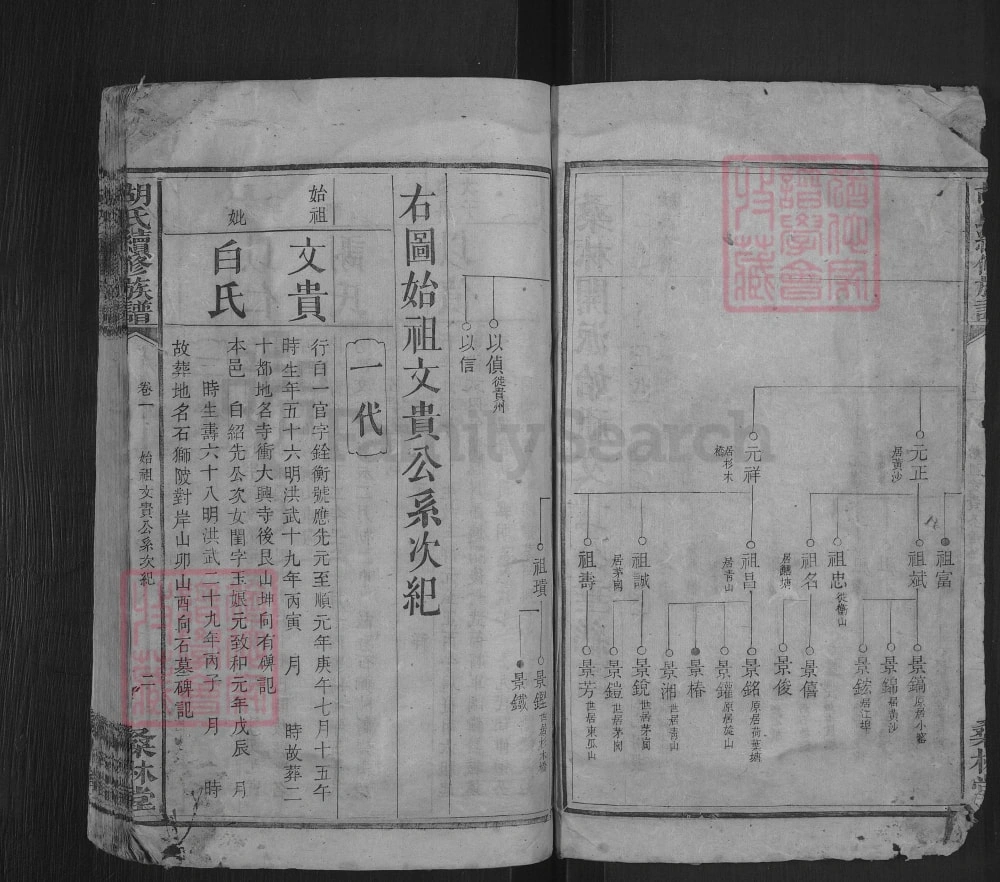 元正
居黃沙
元祥
居杉木
祖富
祖斌
祖忠
徙衡山
祖名
祖昌
居青山
祖誠
居茅岡
祖壽
景鎬
原居小富
景錦
居黃沙
景鋐
居江埠
景僖
景俊
景銘
原居荷葉塘
景鑵
原居旋山
景椿
景湘
世居青山
景銳
世居茅岡
景鎧
世居茅岡
景芳
世居東瓜山
以偵
徙貴州
以信
祖璜
景鏗
景鐵
右圖始祖文貴公系次紀
一代
始祖
文貴
行白一官字銓衡號應先元至順元年庚午七月十五午
時生年五十六明洪武十九年丙寅 月 時故葬二
十都地名寺衝大興寺後艮山坤向有碑記
妣
白氏
本邑 白紹先公次女閨字玉娘元致和元年戊辰 月
時生壽六十八明洪武二十九年丙子 月 時
故葬地名石獅陂對岸山卯山酉向石墓碑記
胡氏續修族譜
卷一
始祖文貴公系次紀
二
桑林堂
FamilySearch